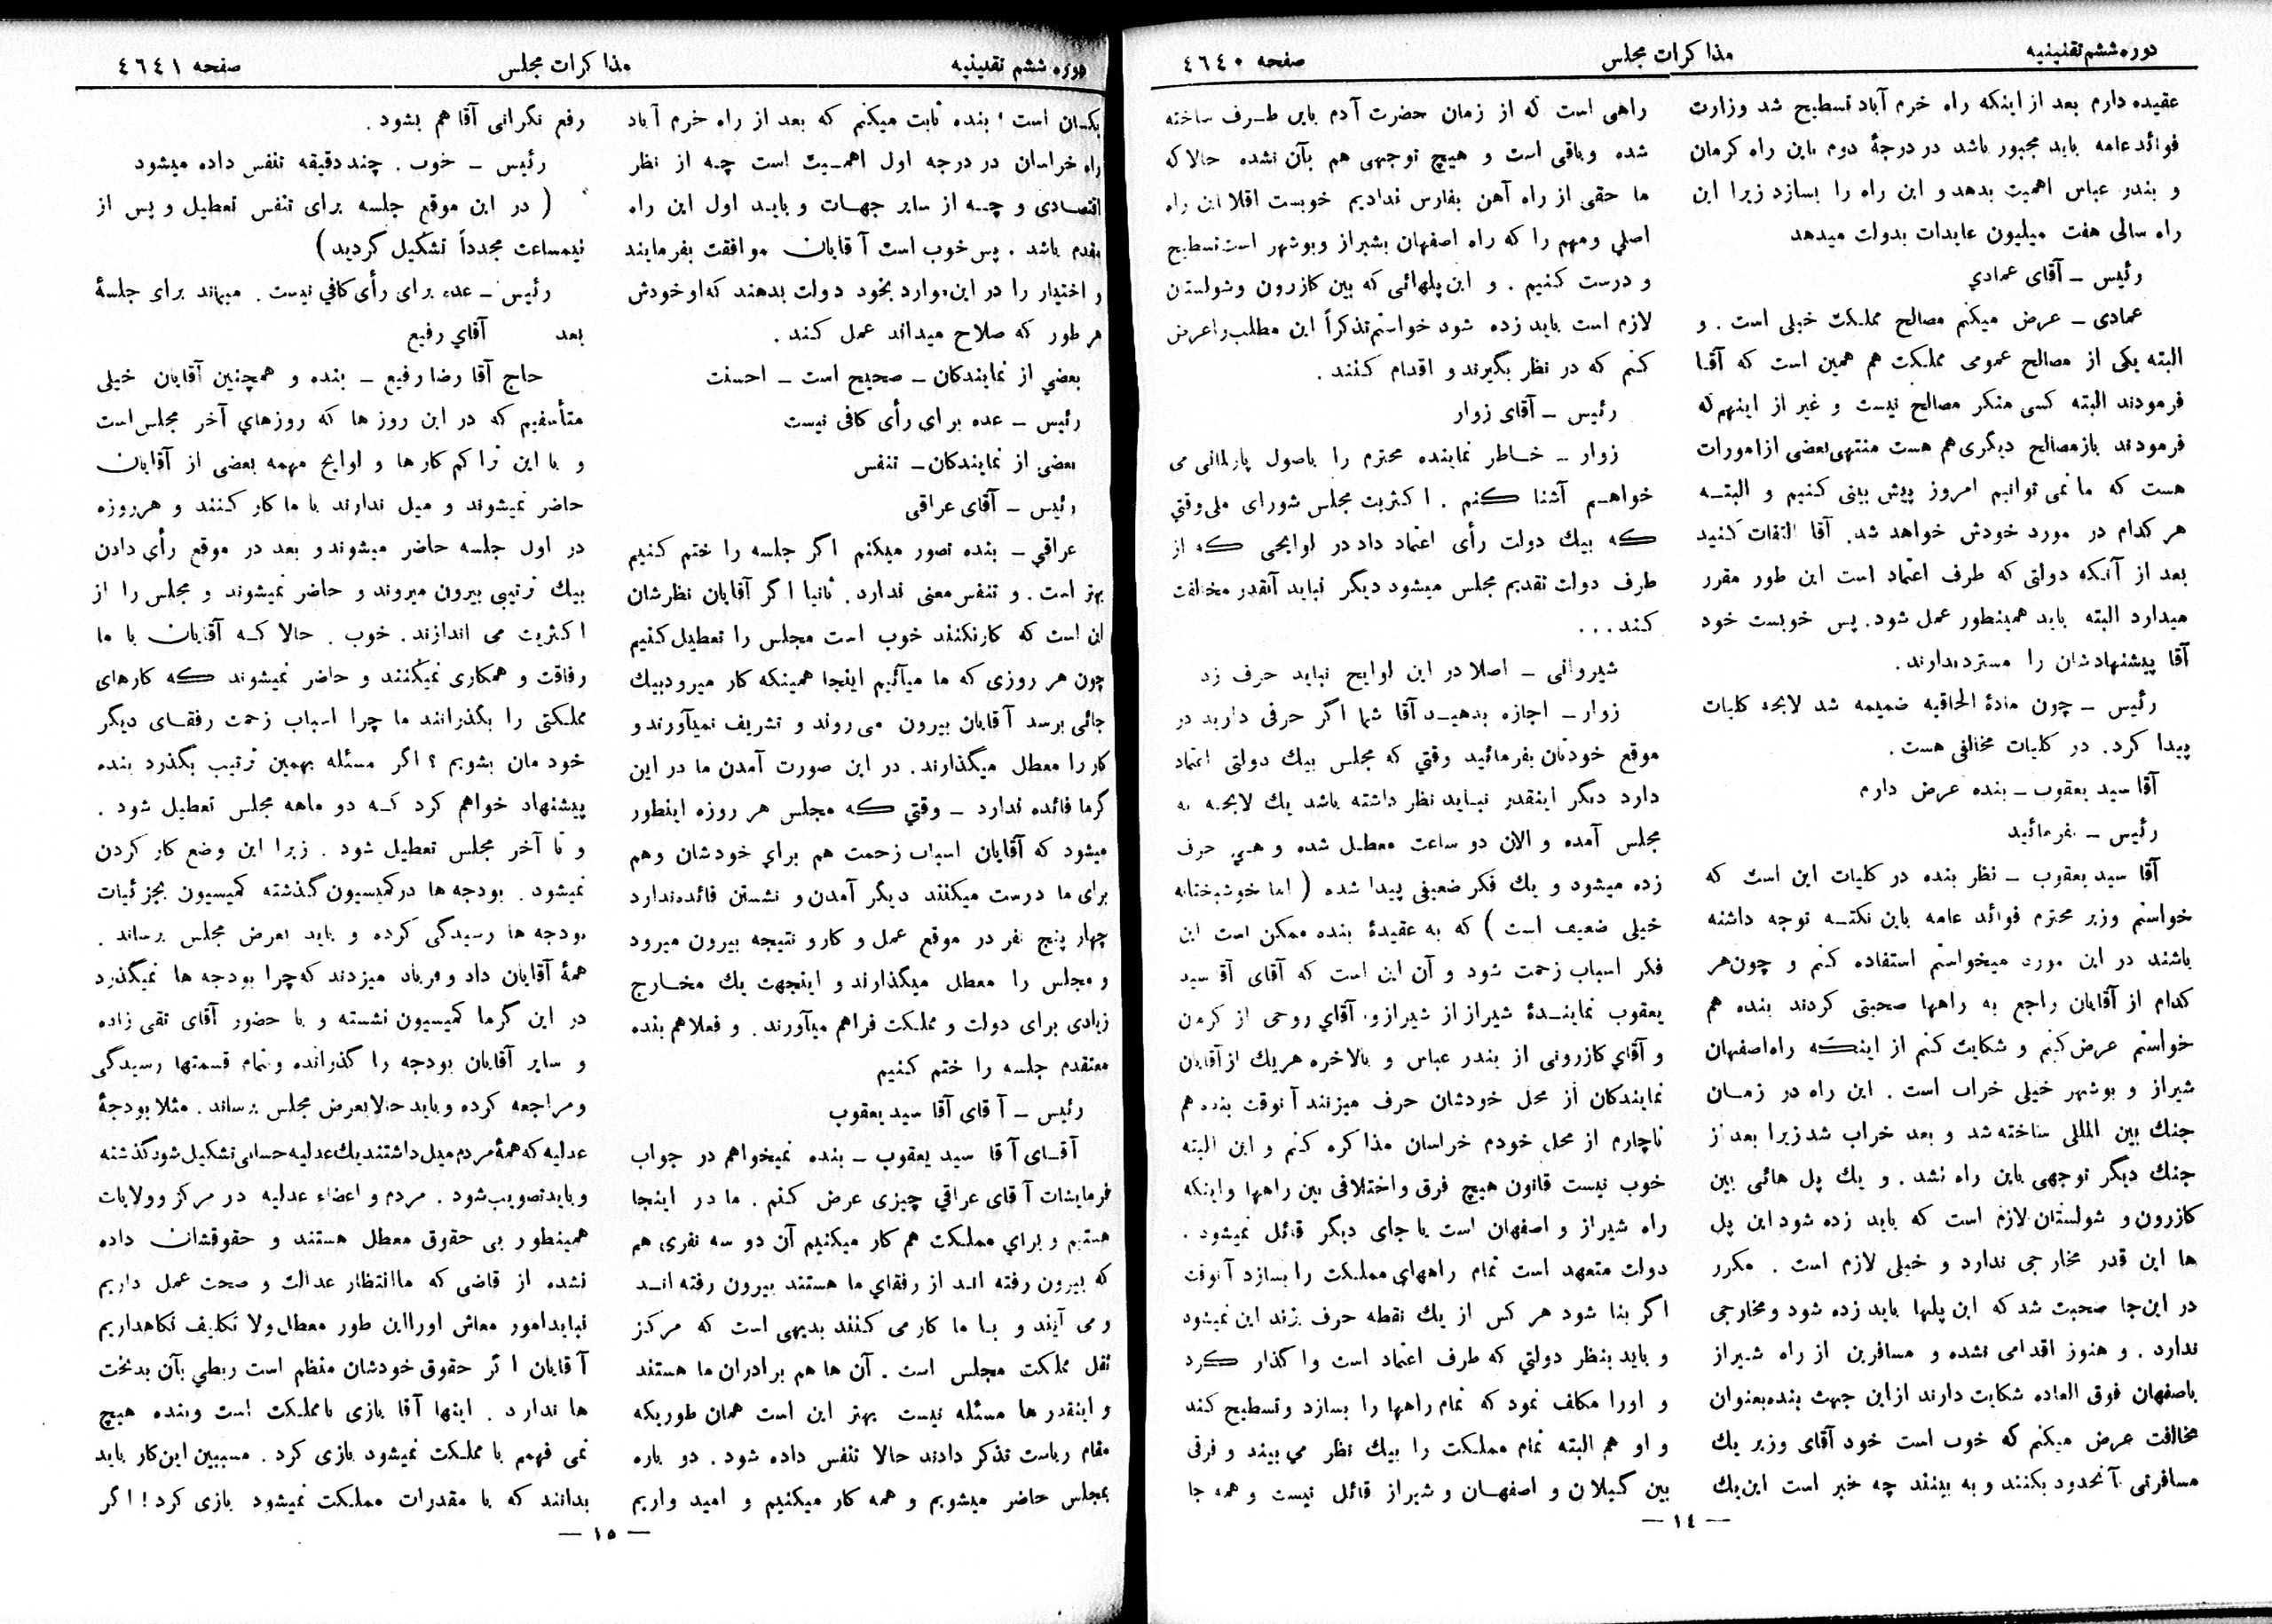 دوره ششم تقنینیه
مذاکرات مجلس
صفحه ٤٦٤٠
عقیده دارم بعد از اینکه راه خرم آباد تسطیح شد وزارت
فوائد عامه باید مجبور باشد در درجهٔ دوم باین راه کرمان
و بندر عباس اهمیت بدهد و این راه را بسازد زیرا این
راه سالی هفت میلیون عایدات بدولت میدهد
رئیس ــ آقای عمادي
عمادی ــ عرض میکنم مصالح مملکت خیلی است . و
البته یکی از مصالح عمومی مملکت هم همین است که آقا
فرمودند البته کسی منکر مصالح نیست و غیر از اینهم که
فرمودند باز مصالح دیگری هم هست منتهی بعضی از امورات
هست که ما نمی توانیم امروز پیش بینی کنیم و البته
هر کدام در مورد خودش خواهد شد. آقا التفات کنید
بعد از آنکه دولتی که طرف اعتماد است این طور مقرر
میدارد البته باید همینطور عمل شود. پس خوبست خود
آقا پیشنهادشان را مسترد بدارند.
رئیس ــ چون مادهٔ الحاقیه ضمیمه شد لایحه کلیات
پیدا کرد. در کلیات مخالفی هست .
آقا سید یعقوب ــ بنده عرض دارم
رئیس ــ بفرمائید
آقا سید یعقوب ــ نظر بنده در کلیات این است که
خواستم وزیر محترم فوائد عامه باین نکته توجه داشته
باشند در این مورد میخواستم استفاده کنم و چون هر
کدام از آقایان راجع به راهها صحبتی کردند بنده هم
خواستم عرض کنم و شکایت کنم از اینکه راه اصفهان
شیراز و بوشهر خیلی خراب است . این راه در زمان
جنك بین المللی ساخته شد و بعد خراب شد زیرا بعد از
جنك دیگر توجهی باین راه نشد . و یك پل هائی بین
کازرون و شولستان لازم است که باید زده شود این پل
ها این قدر مخارجی ندارد و خیلی لازم است . مکرر
در این جا صحبت شد که این پلها باید زده شود و مخارجی
ندارد . و هنوز اقدامی نشده و مسافرین از راه شیراز
باصفهان فوق العاده شکایت دارند از این جهت بنده بعنوان
مخالفت عرض میکنم که خوب است خود آقای وزیر یك
مسافرتی آنحدود بکنند و به بینند چه خبر است این یك
راهی است که از زمان حضرت آدم باین طرف ساخته
شده و باقی است و هیچ توجهی هم بآن نشده حالا که
ما حقی از راه آهن بفارس ندادیم خوبست اقلا این راه
اصلي و مهم را که راه اصفهان بشیراز و بوشهر است تسطیح
و درست کنیم . و این پلهائی که بین کازرون و شولستان
لازم است باید زده شود خواستم تذکراً این مطلب را عرض
کنم که در نظر بگیرند و اقدام کنند .
رئیس ــ آقای زوار
زوار ــ خاطر نماینده محترم را باصول پارلمانی می
خواهم آشنا کنم . اکثریت مجلس شورای ملی وقتي
که بیك دولت رأی اعتماد داد در لوایحی که از
طرف دولت تقدیم مجلس میشود دیگر نباید آنقدر مخالفت
کند...
شیروانی ــ اصلا در این لوایح نباید حرف زد
زوار ــ اجازه بدهید آقا شما اگر حرفی دارید در
موقع خودتان بفرمائید وقتي که مجلس بیك دولتی اعتماد
دارد دیگر اینقدر نباید نظر داشته باشد یك لایحه به
مجلس آمده و الان دو ساعت معطل شده و هی حرف
زده میشود و یك فکر ضعیفی پیدا شده ( اما خوشبختانه
خیلی ضعیف است ) که به عقیدهٔ بنده ممکن است این
فکر اسباب زحمت شود و آن این است که آقای آقا سید
یعقوب نمایندهٔ شیراز از شیراز و آقاي روحی از کرمان
و آقاي کازرونی از بندر عباس و بالاخره هر یك از آقایان
نمایندگان از محل خودشان حرف میزنند آنوقت بنده هم
ناچارم از محل خودم خراسان مذاکره کنم و این البته
خوب نیست قانون هیچ فرق و اختلافی بین راهها و اینکه
راه شیراز و اصفهان است یا جای دیگر قائل نمیشود .
دولت متعهد است تمام راههای مملکت را بسازد آنوقت
اگر بنا شود هر کس از یك نقطه حرف بزند این نمیشود
و باید بنظر دولتي که طرف اعتماد است واگذار کرد
و اورا مکلف نمود که تمام راهها را بسازد و تسطیح کند
و او هم البته تمام مملکت را بیك نظر می بیند و فرقی
بین گیلان و اصفهان و شیراز قائل نیست و همه جا
— ١٤ —
دوره ششم تقنینیه
مذاکرات مجلس
صفحه ٤٦٤١
یکسان است ، بنده ثابت میکنم که بعد از راه خرم آباد
راه خراسان در درجه اول اهمیت است چه از نظر
اقتصادی و چه از سایر جهات و باید اول این راه
مقدم باشد . پس خوب است آقایان موافقت بفرمایند
و اختیار را در این موارد بخود دولت بدهند که او خودش
هر طور که صلاح میداند عمل کند .
بعضي از نمایندکان ــ صحیح است ــ احسنت
رئیس ــ عده برای رأی کافی نیست
بعضي از نمایندکان ــ تنفس
رئیس ــ آقای عراقی
عراقي ــ بنده تصور میکنم اگر جلسه را ختم کنیم
بهتر است . و تنفس معنی ندارد . ثانیا اگر آقایان نظرشان
این است که کار نکنند خوب است مجلس را تعطیل کنیم
چون هر روزی که ما میآئیم اینجا همینکه کار میرود بیك
جائی برسد آقایان بیرون می روند و تشریف نمیآورند و
کار را معطل میگذارند . در این صورت آمدن ما در این
گرما فائده ندارد ــ وقتي که مجلس هر روزه اینطور
میشود که آقایان اسباب زحمت هم برای خودشان و هم
برای ما درست میکنند دیگر آمدن و نشستن فائده ندارد
چهار پنج نفر در موقع عمل و کار و نتیجه بیرون میرود
و مجلس را معطل میگذارند و اینجهت یك مخارج
زیادی برای دولت و مملکت فراهم میآورند . و فعلا هم بنده
معتقدم جلسه را ختم کنیم
رئیس ــ آقای آقا سید یعقوب
آقای آقا سید یعقوب ــ بنده نمیخواهم در جواب
فرمایشات آقای عراقي چیزی عرض کنم . ما در اینجا
هستیم و برای مملکت هم کار میکنیم آن دو سه نفری هم
که بیرون رفته اند از رفقای ما هستند بیرون رفته اند
و می آیند و با ما کار می کنند بدیهی است که مرکز
ثقل مملکت مجلس است . آن ها هم برادران ما هستند
و اینقدر ها مسئله نیست بهتر این است همان طوریکه
مقام ریاست تذکر دادند حالا تنفس داده شود . دو باره
بمجلس حاضر میشویم و همه کار میکنیم و امید واریم
رفع نگرانی آقا هم بشود .
رئیس ــ خوب . چند دقیقه تنفس داده میشود
( در این موقع جلسه برای تنفس تعطیل و پس از
نیمساعت مجدداً تشکیل گردید )
رئیس ــ عده برای رأی کافي نیست . میماند برای جلسهٔ
بعد آقاي رفیع
حاج آقا رضا رفیع ــ بنده و همچنین آقایان خیلی
متأسفیم که در این روز ها که روزهای آخر مجلس است
و با این تراکم کار ها و لوایح مهمه بعضی از آقایان
حاضر نمیشوند و میل ندارند با ما کار کنند و هر روزه
در اول جلسه حاضر میشوند و بعد در موقع رأی دادن
بیك ترتیبی بیرون میروند و حاضر نمیشوند و مجلس را از
اکثریت می اندازند . خوب . حالا که آقایان با ما
رفاقت و همکاری نمیکنند و حاضر نمیشوند که کارهای
مملکتی را بگذرانند ما چرا اسباب زحمت رفقای دیگر
خود مان بشویم ؟ اگر مسئله بهمین ترتیب بگذرد بنده
پیشنهاد خواهم کرد که دو ماهه مجلس تعطیل شود .
و تا آخر مجلس تعطیل شود . زیرا این وضع کار کردن
نمیشود . بودجه ها در کمیسیون گذشته کمیسیون بجزئیات
بودجه ها رسیدگی کرده و باید بعرض مجلس برساند .
همهٔ آقایان داد و فریاد میزدند که چرا بودجه ها نمیگذرد
در این گرما کمیسیون نشسته و با حضور آقای تقی زاده
و سایر آقایان بودجه را گذرانده و تمام قسمتها رسیدگی
و مراجعه کرده و باید حالا بعرض مجلس برساند . مثلا بودجهٔ
عدلیه که همهٔ مردم میل داشتند یك عدلیه حسابی تشکیل شود گذشته
و باید تصویب شود . مردم و اعضاء عدلیه در مرکز و ولایات
همینطور بی حقوق معطل هستند و حقوقشان داده
نشده از قاضی که ما انتظار عدالت و صحت عمل داریم
نباید امور معاش اورا این طور معطل و لا تکلیف نگاهداریم
آقایان اگر حقوق خودشان منظم است ربطي بآن بدبخت
ها ندارد . اینها آقا بازی با مملکت است و بنده هیچ
نمی فهمم با مملکت نمیشود بازی کرد . مسببین این کار باید
بدانند که با مقدرات مملکت نمیشود بازی کرد ! اگر
— ١٥ —